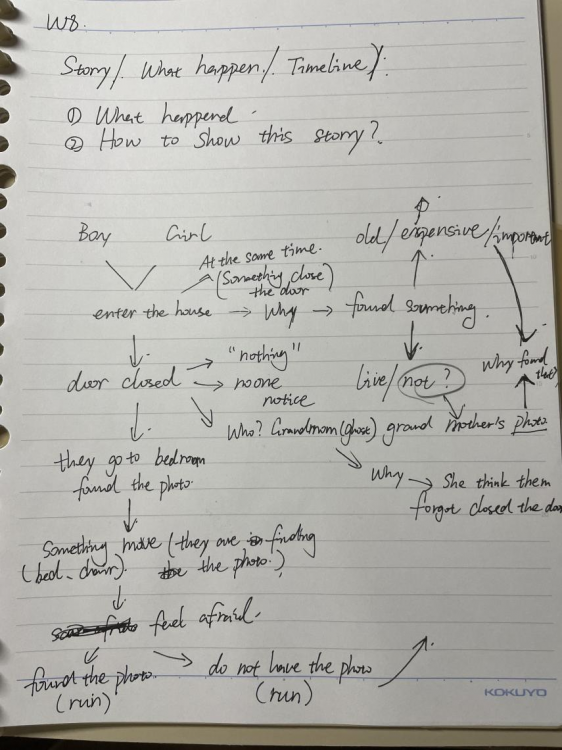 W8.
Storry/. What happen/. Timeline/.
① What happend.
② How to show this storry?
Boy Girl
old/expensive/important
At the same time.
(Something close
the door)
enter the house → Why → found sumthing.
"nothing"
door closed → no one
notice
live/not?
Why found
that
Who? Grandmom (ghost) grand mother's photo
they go to bedroom
found the photo.
Why → She think them
forgot closed the door
Something move (they are finding
(bed, chair). the photo.)
feel afraid.
found the photo.
(run)
do not have the photo
(run)
KOKUYO